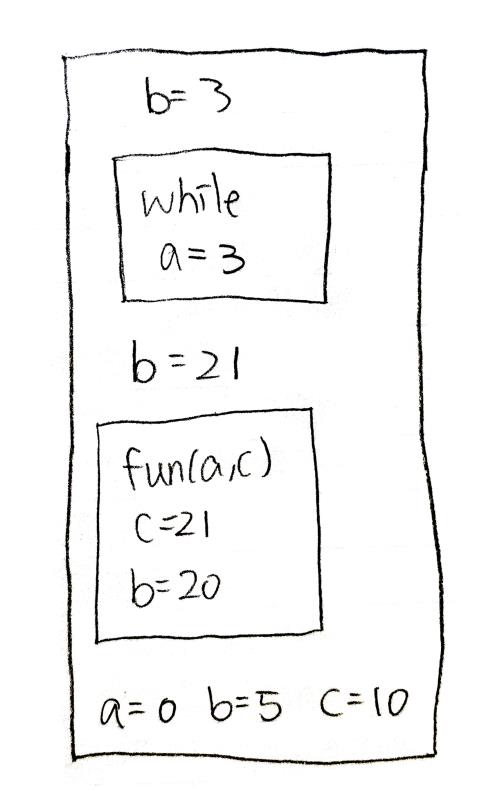 b=3
while
a=3
b=21
fun(a,c)
c=21
b=20
a=0 b=5 c=10